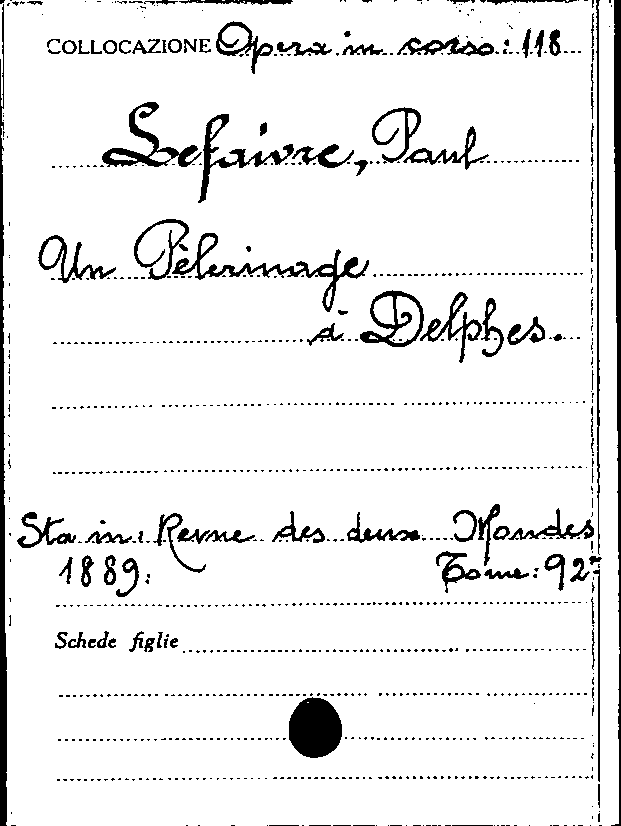 COLLOCAZIONE Opera in corso: 118
Lefaivre, Paul
Un Pèlerinage
à Delphes.
Sta in: Revue des deux Mondes
1889. Tome: 92º
Schede figlie